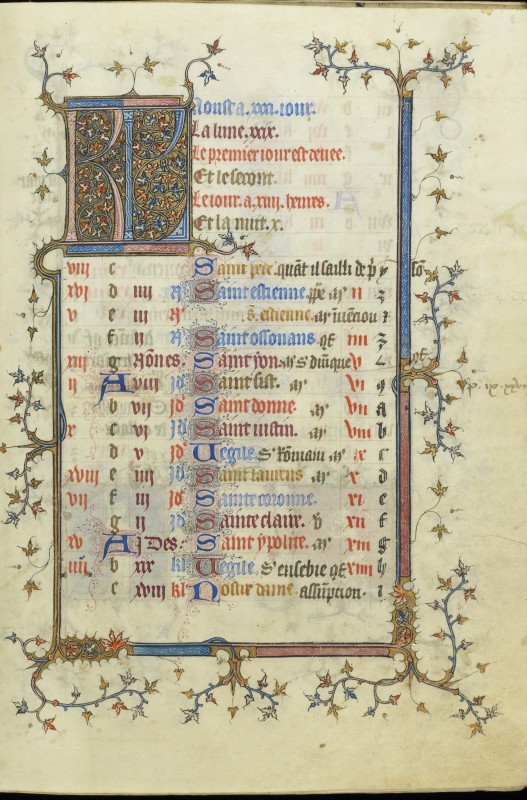 KL Aoust a .xxxi. iour.
La lune .xxix.
Le premier iour est
Et le secont.
Le iour .a. xiiii. heures.
Et la nuit .x.
viii c Saint pere quãt il sailli de p̃ y sõ
xvi d iiii N̄ Saint estienne. pp̃e ⁊ m̃ ii z
v e iii N̄ S. estienne. m̃ iuẽciou
f ii N̄ Saint ossouans 9f iiii
xiii g Nones. Saint yon. m̃ S diñque v
ii A viii Jd Saint sist. m̃ vi
b vii Jd Saint donne. m̃ vii a
x c vi Jd Saint iustin. m̃ viii b
d v Jd Uegile. S' Romain m̃ ix c
xviii e iiii Jd Saint laurens m̃ x d
vii f iii Jd Sainte coronne. xi e
g ii Jd Sainte clair. v̄ xii f
xv A Jdes. Saint ypolite. m̃ xiii g
iiii b xix kl Uegile. S' eusebie 9f xiiii h
c xviii kl Nostre dame assũption. i